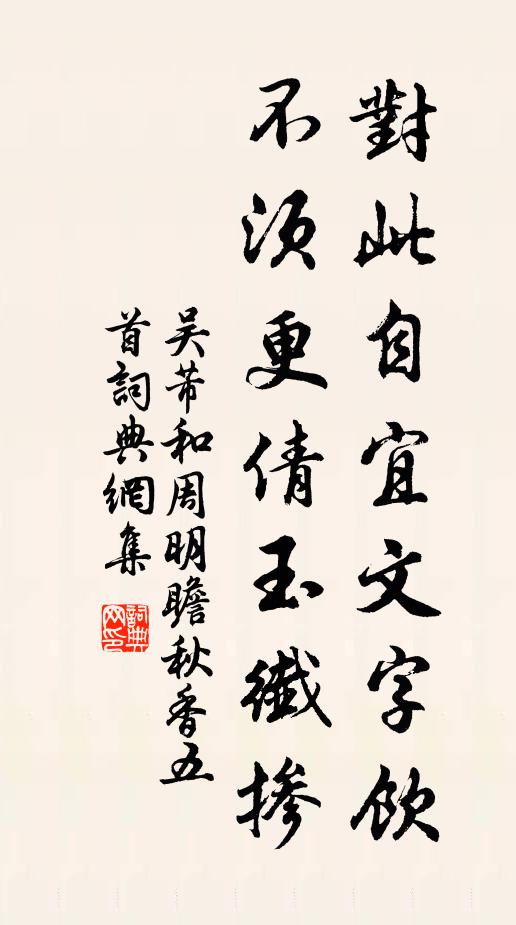 對此自宜文字飲
不須更倩玉纖摻
吴芾和周明瞻秋香五
首詞典網集
詞典
网印